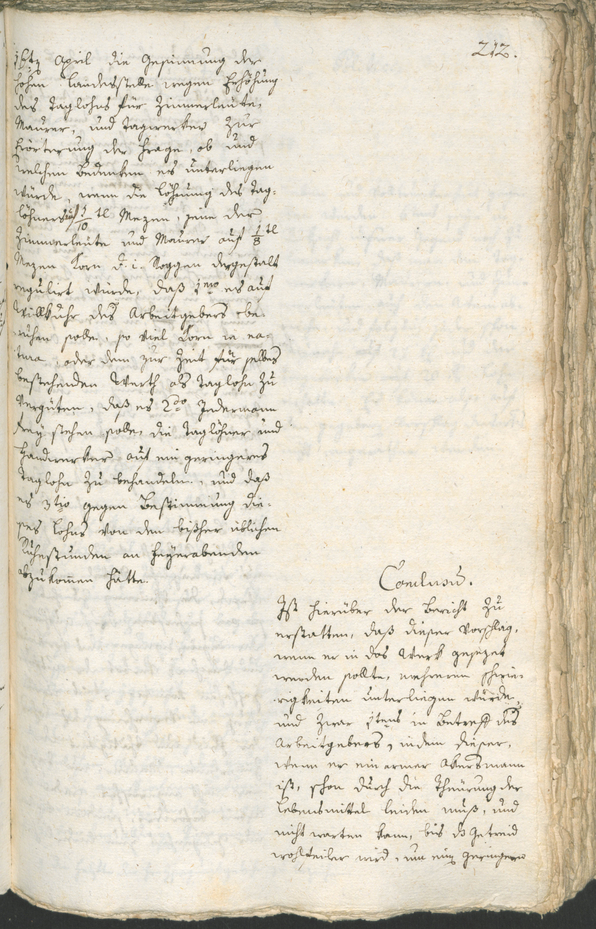 212.
16tn April die Gesinnung der
hohen Landesstelle wegen Erhöhung
des Taglohns für Zimmerleute,
Maurer, und Tagwerker zur
Erörterung der Frage, ob und
welchem Bedenken es unterliegen
würde, wenn die Löhnung des Tag-
löhners auf 1/10 tl Mezen, jene der
Zimmerleute und Maurer auf 1/8 tl
Mezen Korn d. i. Roggen dergestalt
regulirt würde, daß 1mo es auf
Willkuhr des Arbeitgebers be-
ruhen solle, so viel Korn in na-
tura, oder dem zur Zeit für selbes
bestehenden Werth als Taglohn zu
vergüten, daß es 2do Jedermann
frey stehen solle, die Taglöhner und
Handwerker auf ein geringeres
Taglohn zu behandeln, und daß
es 3tio gegen Bestimmung die-
ses Lohns von den bißher üblichen
Ruhestunden an Feyerabenden
abzukommen hätte.
Conclusum.
Ist hierüber der Bericht zu
erstatten, daß dieser Vorschlag,
wenn er in das Werk gesezet
werden sollte, mehreren Schwie-
rigkeiten unterliegen würde,
und zwar 1tens in Betreff des
Arbeitgebers, indem dieser,
wenn er ein armer Akersmann
ist, schon durch die Theürung der
Lebensmittel leiden muß, und
nicht warten kann, bis das Getreid
wohlfeiler wird, um einen geringern